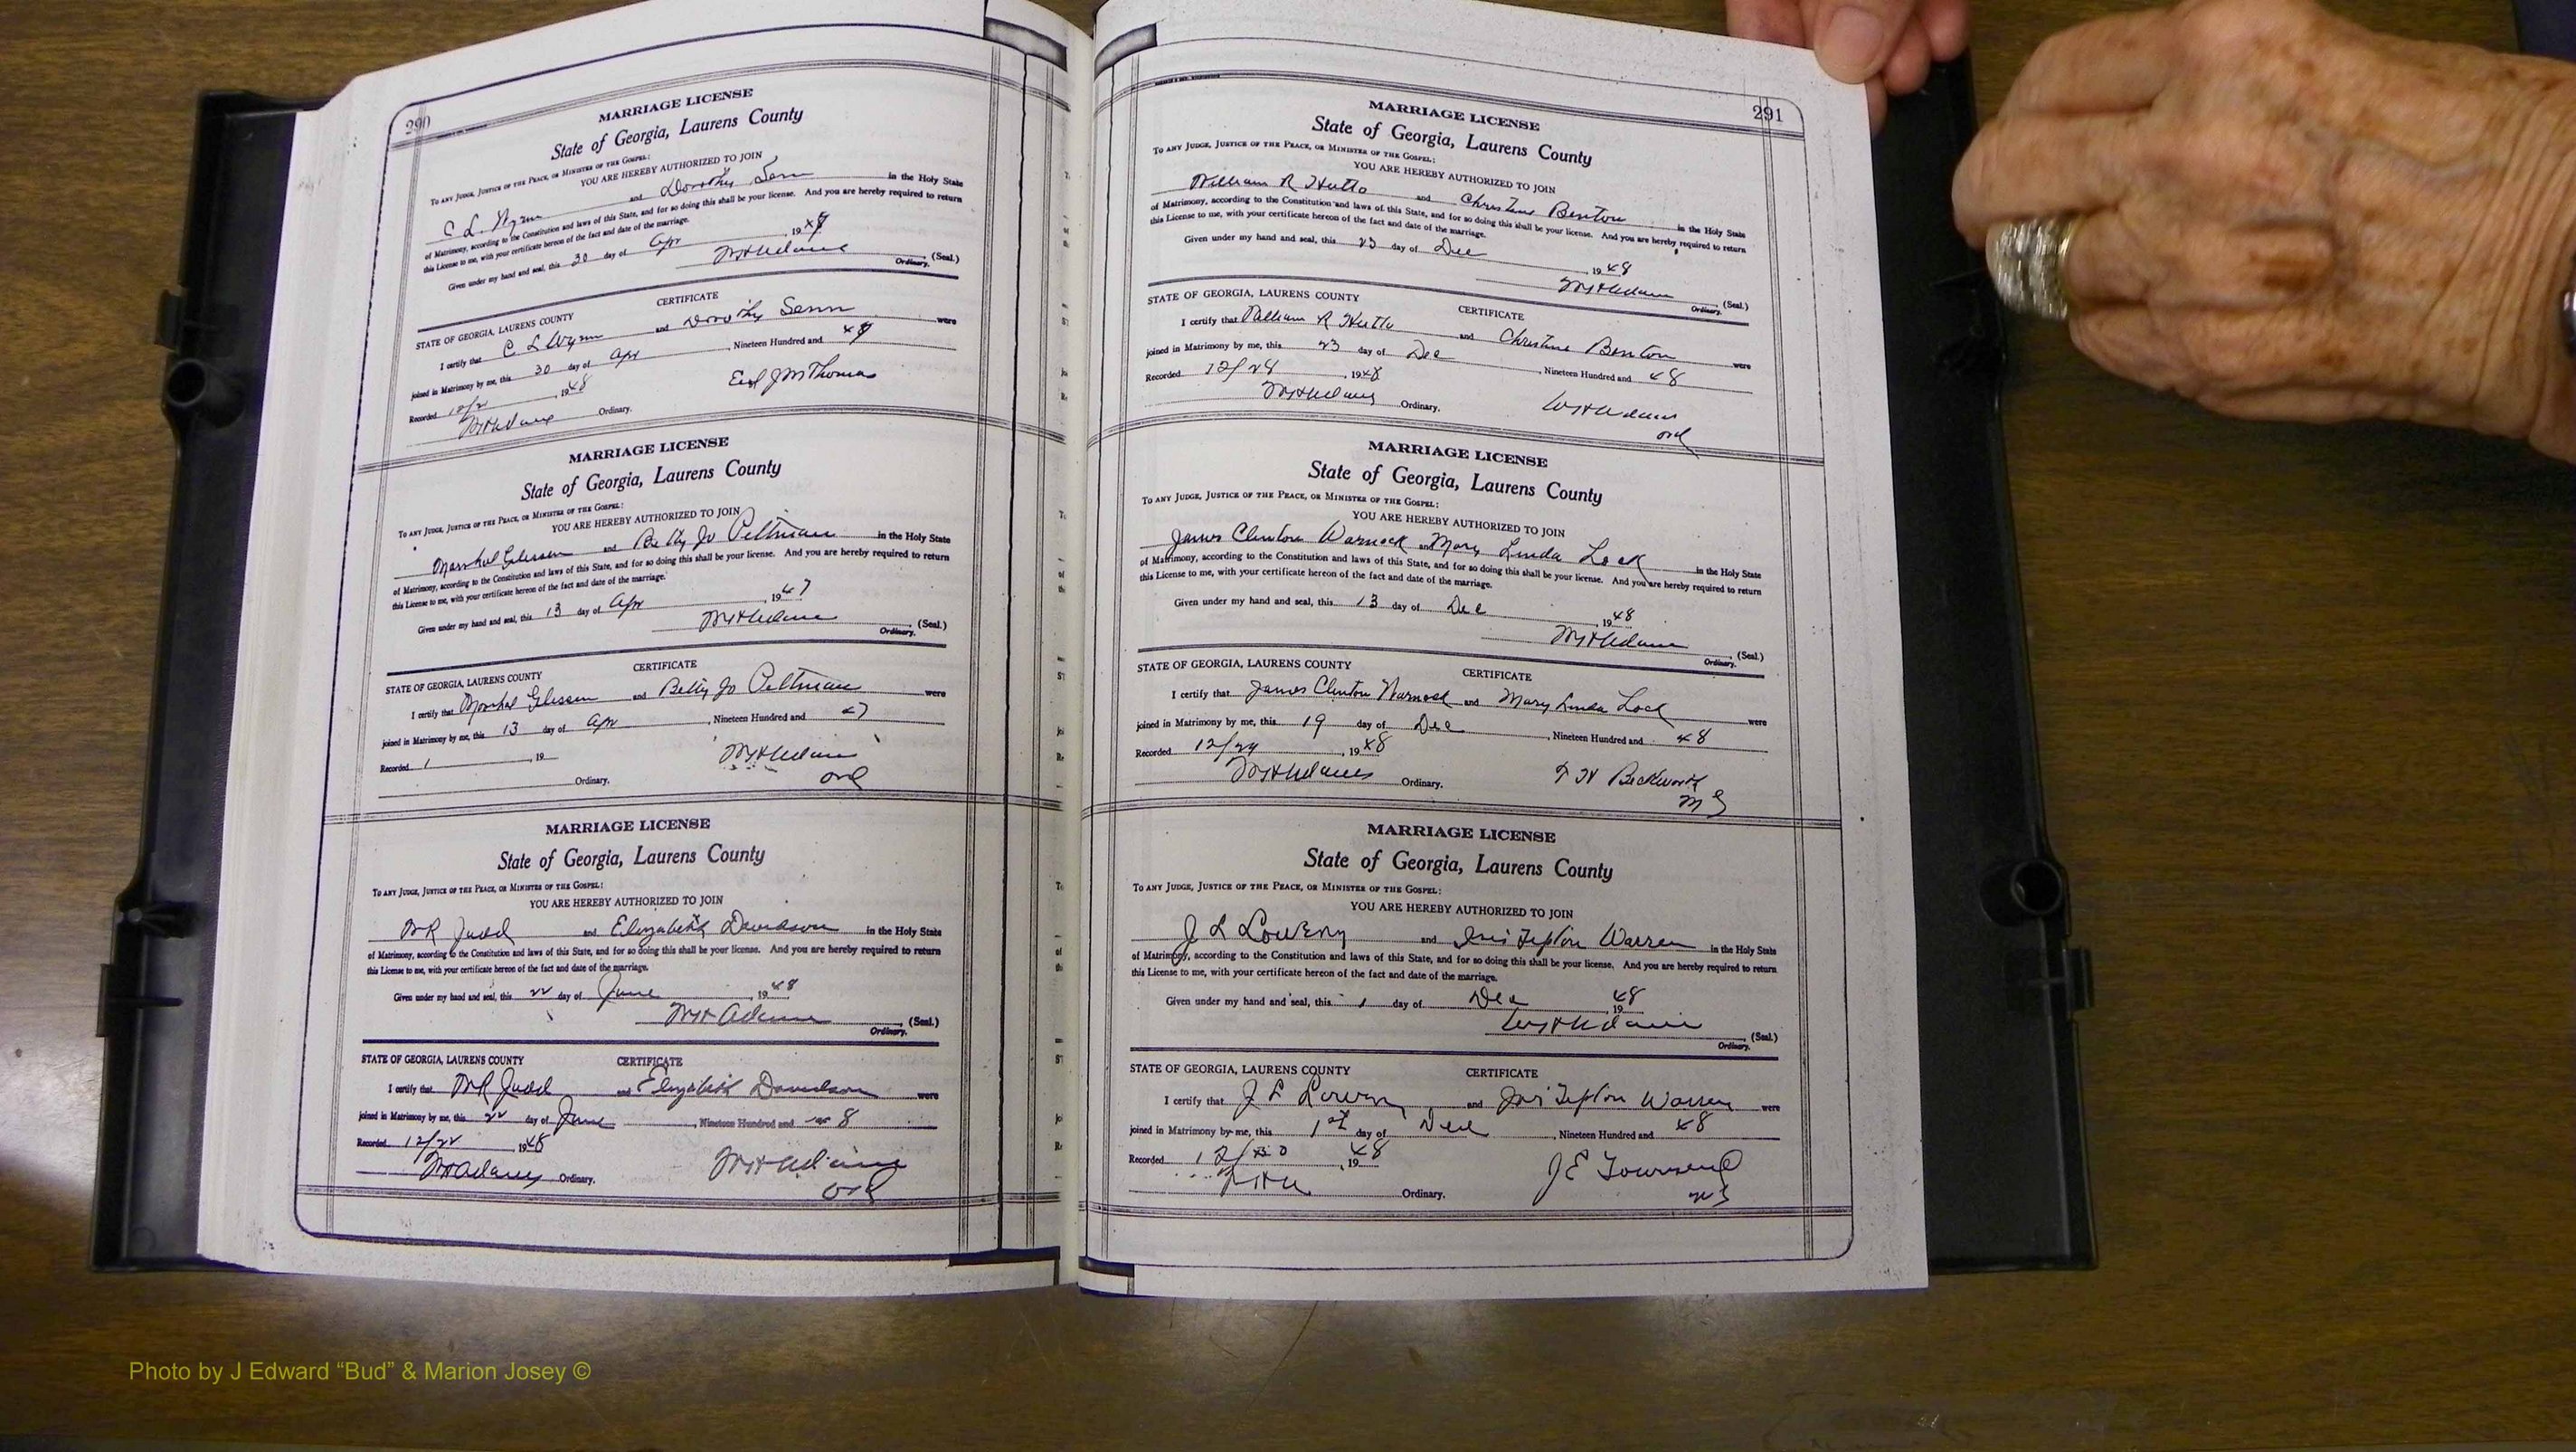 290
MARRIAGE LICENSE
State of Georgia, Laurens County
To any Judge, Justice of the Peace, or Minister of the Gospel:
YOU ARE HEREBY AUTHORIZED TO JOIN
C L. Wynn and Dorothy Senn in the Holy State
of Matrimony, according to the Constitution and laws of this State, and for so doing this shall be your license. And you are hereby required to return
this License to me, with your certificate hereon of the fact and date of the marriage.
Given under my hand and seal, this 30 day of Apr , 19
(Seal.)
Ordinary.
CERTIFICATE
STATE OF GEORGIA, LAURENS COUNTY
I certify that C L Wynn and Dorothy Senn were
joined in Matrimony by me, this 30 day of Apr , Nineteen Hundred and
Recorded 12/21 , 1948
J M Thomas
WH Adams Ordinary.
MARRIAGE LICENSE
State of Georgia, Laurens County
To any Judge, Justice of the Peace, or Minister of the Gospel:
YOU ARE HEREBY AUTHORIZED TO JOIN
and Betty Jo Pittman in the Holy State
of Matrimony, according to the Constitution and laws of this State, and for so doing this shall be your license. And you are hereby required to return
this License to me, with your certificate hereon of the fact and date of the marriage.
Given under my hand and seal, this 13 day of Apr , 1947
WH Adams (Seal.)
Ordinary.
CERTIFICATE
STATE OF GEORGIA, LAURENS COUNTY
I certify that and Betty Jo Pittman were
joined in Matrimony by me, this 13 day of Apr , Nineteen Hundred and 47
Recorded , 19
WH Adams
Ord
Ordinary.
MARRIAGE LICENSE
State of Georgia, Laurens County
To any Judge, Justice of the Peace, or Minister of the Gospel:
YOU ARE HEREBY AUTHORIZED TO JOIN
Judd and Elizabeth Davidson in the Holy State
of Matrimony, according to the Constitution and laws of this State, and for so doing this shall be your license. And you are hereby required to return
this License to me, with your certificate hereon of the fact and date of the marriage.
Given under my hand and seal, this 22 day of June , 1948
WH Adams (Seal.)
Ordinary.
STATE OF GEORGIA, LAURENS COUNTY CERTIFICATE
I certify that Judd and Elizabeth Davidson were
joined in Matrimony by me, this 22 day of June , Nineteen Hundred and 48
Recorded 12/22 , 1948
WH Adams Ordinary.
WH Adams
Ord
291
MARRIAGE LICENSE
State of Georgia, Laurens County
To any Judge, Justice of the Peace, or Minister of the Gospel:
YOU ARE HEREBY AUTHORIZED TO JOIN
William R Hutto and Christine Benton in the Holy State
of Matrimony, according to the Constitution and laws of this State, and for so doing this shall be your license. And you are hereby required to return
this License to me, with your certificate hereon of the fact and date of the marriage.
Given under my hand and seal, this 23 day of Dec , 1948
WH Adams (Seal.)
Ordinary.
STATE OF GEORGIA, LAURENS COUNTY CERTIFICATE
I certify that William R Hutto and Christine Benton were
joined in Matrimony by me, this 23 day of Dec , Nineteen Hundred and 48
Recorded , 1948
WH Adams Ordinary.
WH Adams
Ord
MARRIAGE LICENSE
State of Georgia, Laurens County
To any Judge, Justice of the Peace, or Minister of the Gospel:
YOU ARE HEREBY AUTHORIZED TO JOIN
James Clinton Warnock and Mary Linda Lock in the Holy State
of Matrimony, according to the Constitution and laws of this State, and for so doing this shall be your license. And you are hereby required to return
this License to me, with your certificate hereon of the fact and date of the marriage.
Given under my hand and seal, this 13 day of Dec , 1948
WH Adams (Seal.)
Ordinary.
STATE OF GEORGIA, LAURENS COUNTY CERTIFICATE
I certify that James Clinton Warnock and Mary Linda Lock were
joined in Matrimony by me, this 19 day of Dec , Nineteen Hundred and 48
Recorded , 1948
WH Adams Ordinary.
Beckworth
MG
MARRIAGE LICENSE
State of Georgia, Laurens County
To any Judge, Justice of the Peace, or Minister of the Gospel:
YOU ARE HEREBY AUTHORIZED TO JOIN
J L Lowery and Warren in the Holy State
of Matrimony, according to the Constitution and laws of this State, and for so doing this shall be your license. And you are hereby required to return
this License to me, with your certificate hereon of the fact and date of the marriage.
Given under my hand and seal, this 1 day of Dec 1948
WH Adams (Seal.)
Ordinary.
STATE OF GEORGIA, LAURENS COUNTY CERTIFICATE
I certify that J L Lowery and Warren were
joined in Matrimony by me, this 1st day of Dec , Nineteen Hundred and 48
Recorded , 1948
Ordinary.
J E Townsend
MG
Photo by J Edward “Bud” & Marion Josey ©